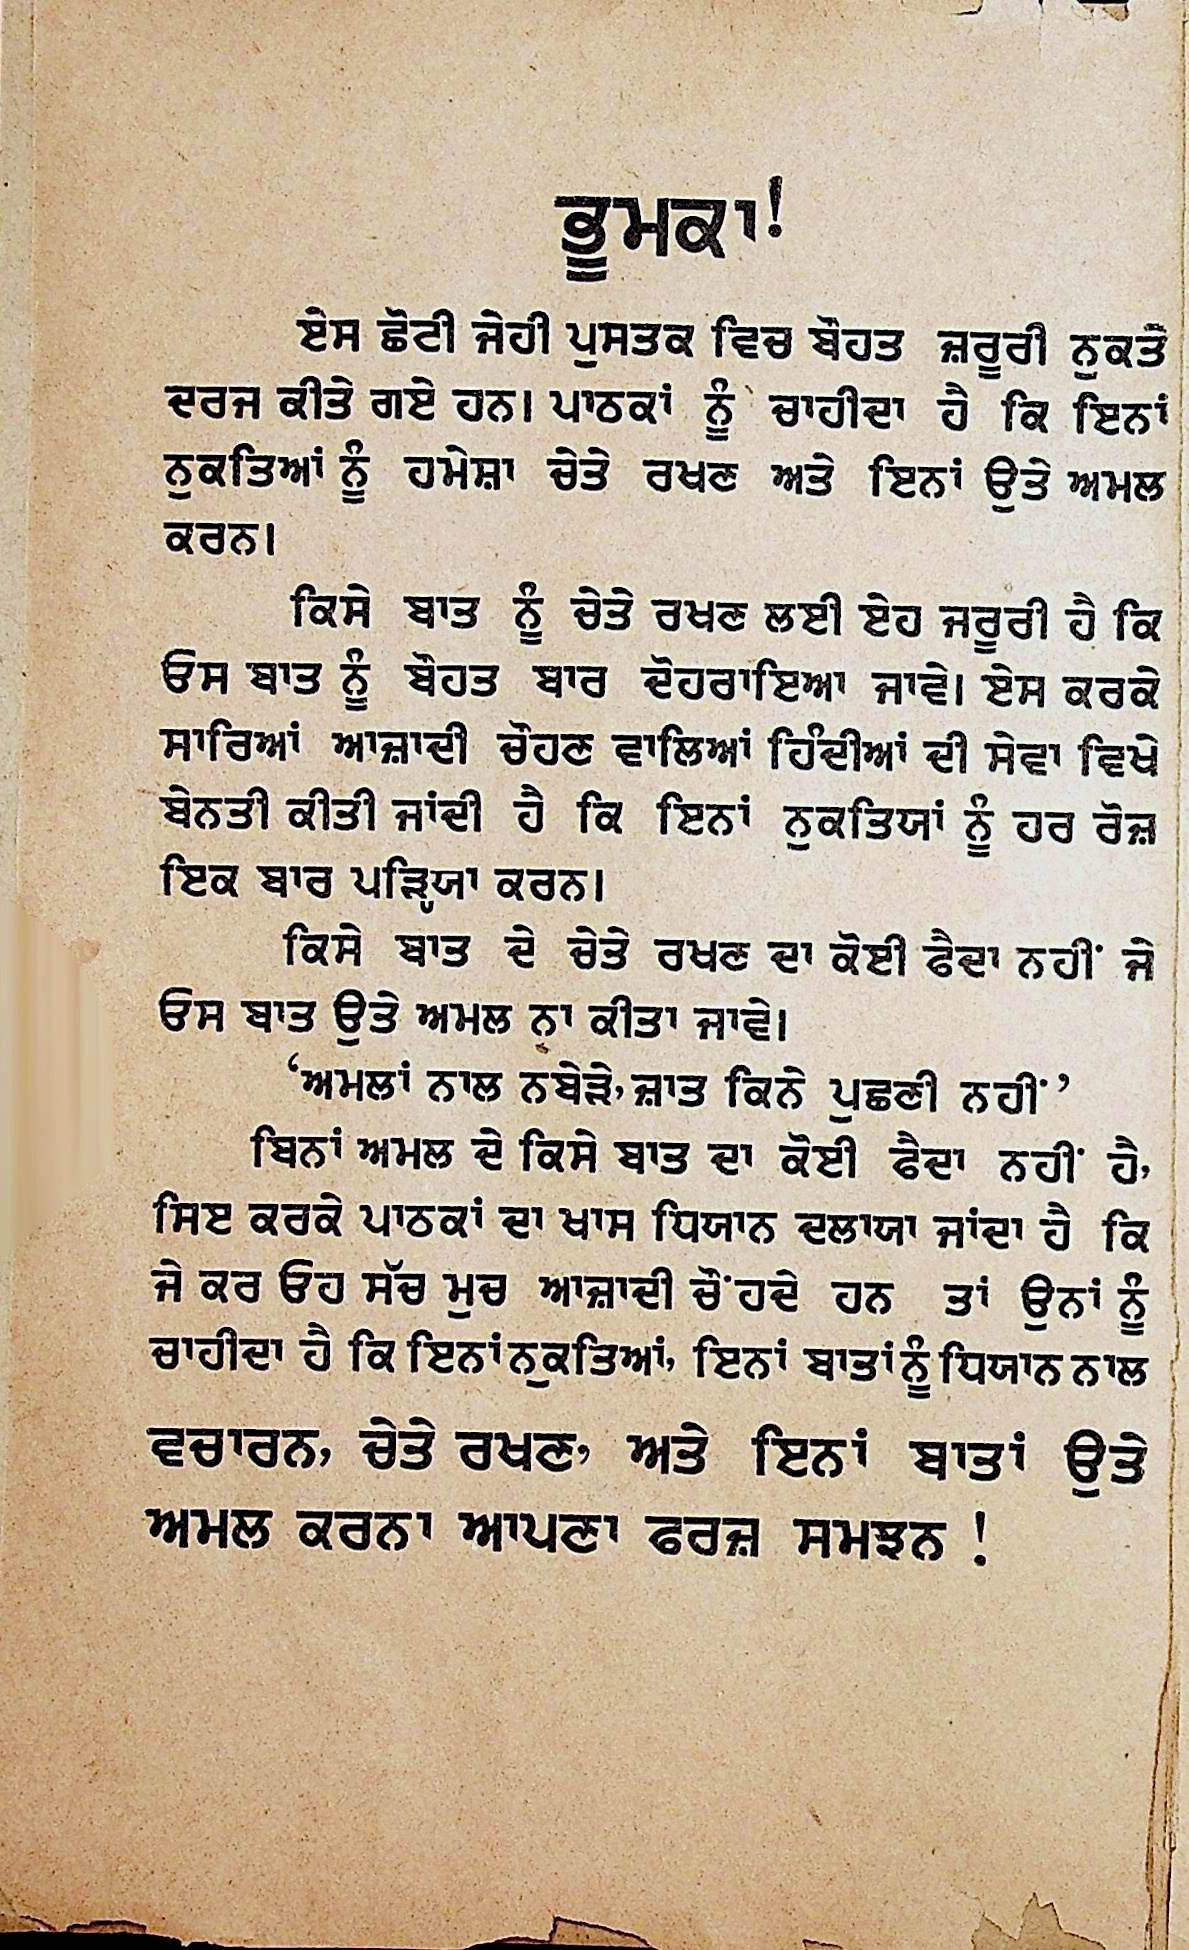 ਭੂਮਕਾ!
ਏਸ ਛੋਟੀ ਜੇਹੀ ਪੁਸਤਕ ਵਿਚ ਬੌਹਤ ਜ਼ਰੂਰੀ ਨੁਕਤੇ
ਦਰਜ ਕੀਤੇ ਗਏ ਹਨ। ਪਾਠਕਾਂ ਨੂੰ ਚਾਹੀਦਾ ਹੈ ਕਿ ਇਨਾਂ
ਨੁਕਤਿਆਂ ਨੂੰ ਹਮੇਸ਼ਾ ਚੇਤੇ ਰਖਣ ਅਤੇ ਇਨਾਂ ਉਤੇ ਅਮਲ
ਕਰਨ।
ਕਿਸੇ ਬਾਤ ਨੂੰ ਚੇਤੇ ਰਖਣ ਲਈ ਏਹ ਜਰੂਰੀ ਹੈ ਕਿ
ਓਸ ਬਾਤ ਨੂੰ ਬੌਹਤ ਬਾਰ ਦੋਹਰਾਇਆ ਜਾਵੇ। ਏਸ ਕਰਕੇ
ਸਾਰਿਆਂ ਆਜ਼ਾਦੀ ਚੌਹਣ ਵਾਲਿਆਂ ਹਿੰਦੀਆਂ ਦੀ ਸੇਵਾ ਵਿਖੇ
ਬੇਨਤੀ ਕੀਤੀ ਜਾਂਦੀ ਹੈ ਕਿ ਇਨਾਂ ਨੁਕਤਿਯਾਂ ਨੂੰ ਹਰ ਰੋਜ਼
ਇਕ ਬਾਰ ਪੜ੍ਹਿਯਾ ਕਰਨ।
ਕਿਸੇ ਬਾਤ ਦੇ ਚੇਤੇ ਰਖਣ ਦਾ ਕੋਈ ਫੈਦਾ ਨਹੀਂ ਜੇ
ਓਸ ਬਾਤ ਉਤੇ ਅਮਲ ਨਾ ਕੀਤਾ ਜਾਵੇ।
‘ਅਮਲਾਂ ਨਾਲ ਨਬੇੜੇ, ਜ਼ਾਤ ਕਿਨੇ ਪੁਛਣੀ ਨਹੀਂ’
ਬਿਨਾਂ ਅਮਲ ਦੇ ਕਿਸੇ ਬਾਤ ਦਾ ਕੋਈ ਫੈਦਾ ਨਹੀਂ ਹੈ,
ਸਿਏ ਕਰਕੇ ਪਾਠਕਾਂ ਦਾ ਖਾਸ ਧਿਯਾਨ ਦਲਾਯਾ ਜਾਂਦਾ ਹੈ ਕਿ
ਜੇ ਕਰ ਓਹ ਸੱਚ ਮੁਚ ਆਜ਼ਾਦੀ ਚੌਂਹਦੇ ਹਨ ਤਾਂ ਉਨਾਂ ਨੂੰ
ਚਾਹੀਦਾ ਹੈ ਕਿ ਇਨਾਂ ਨੁਕਤਿਆਂ, ਇਨਾਂ ਬਾਤਾਂ ਨੂੰ ਧਿਯਾਨ ਨਾਲ
ਵਚਾਰਨ, ਚੇਤੇ ਰਖਣ, ਅਤੇ ਇਨਾਂ ਬਾਤਾਂ ਉਤੇ
ਅਮਲ ਕਰਨਾ ਆਪਣਾ ਫਰਜ਼ ਸਮਝਨ !